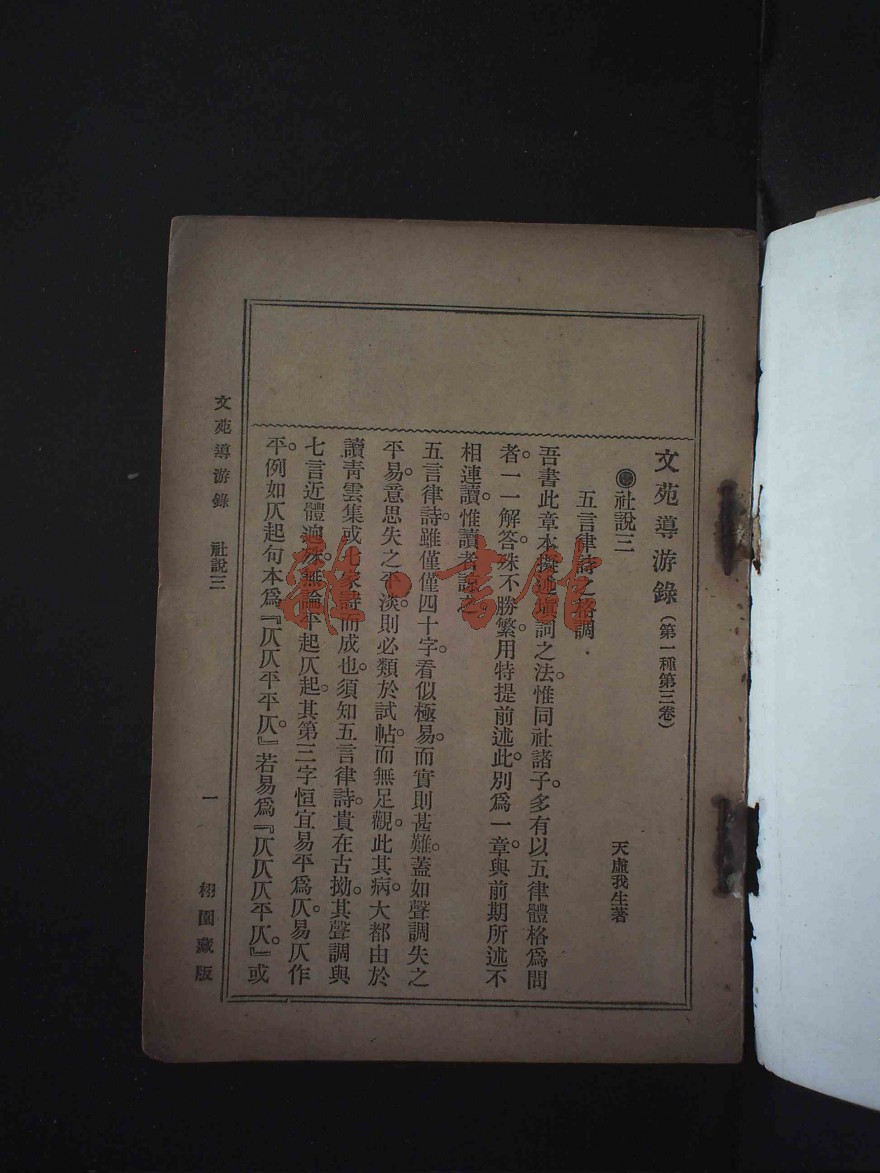 文苑導游錄(第一種第三卷)
社說三
天虛我生著
五言律詩之格調
吾書此章本擬述填詞之法。惟同社諸子。多有以五律體格爲問
者。一一解答。殊不勝繁。用特提前述此。別爲一章。與前期所述不
相連讀。惟讀者諒之。
五言律詩。雖僅僅四十字。看似極易。而實則甚難。蓋如聲調失之
平易。意思失之平淡。則必類於試帖。而無足觀。此其病。大都由於
讀靑雲集或七家詩而成也。須知五言律詩。貴在古拗。其聲調與
七言近體逈殊。無論平起仄起。其第三字恒宜易平爲仄。易仄作
平。例如仄起句本爲『仄仄平平仄。』若易爲『仄仄仄平仄。』或
文苑導游錄 社說三
一
栩園藏版
雜·書館